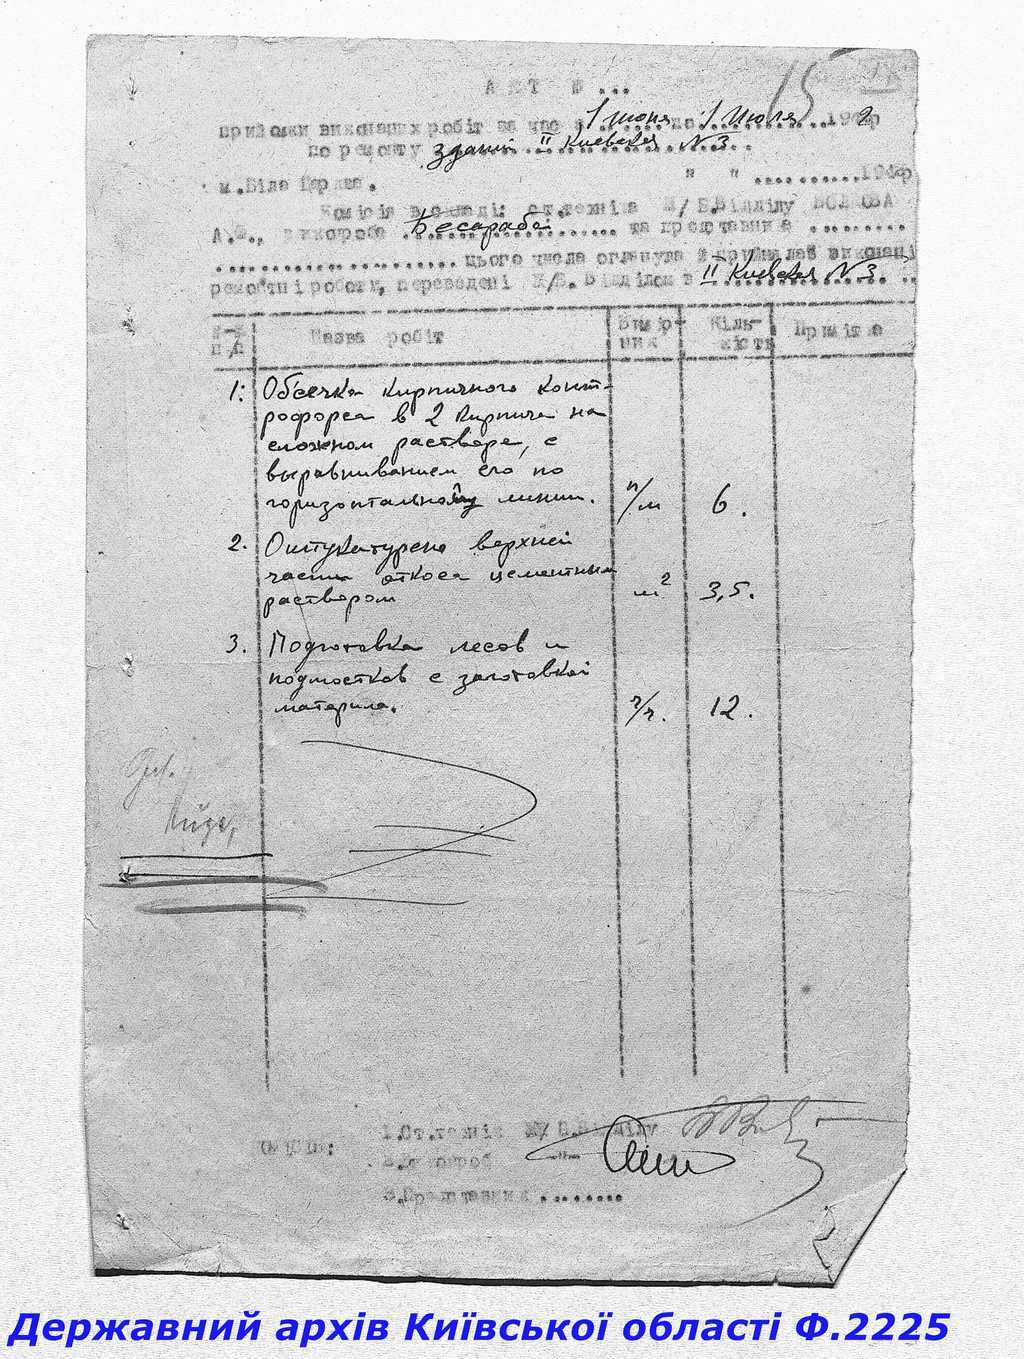 15
А К Т № ...
прийомки виконаних робіт за час з 1 июня по 1 Июля 1942р
по ремонту здания II Киевская № 3
м.Біла Церква. " " ..........194 р
Комісія в складі: ст.техніка Ж/Б.Відділу ВОЛКОВА
А.Ф., виконроба Бесараба та представника .........
.....................цього числа оглянула й прийняла виконані
ремонтні роботи, переведені Ж/Б. Відділом в II Киевская № 3.
№-№ п/п Назва робіт Вимір-ник Кіль-кість Примітка
1. Обсечка кирпичного конт-
рофорса в 2 кирпича на
сложном растворе, с
выравниванием его по
горизонтальной линии. п/м 6.
2. Оштукатурено верхней
части откоса цементным
раствором м² 3,5.
3. Подготовка лесов и
подмостков с заготовкой
материла. ч/ч. 12.
КОМІСІЯ: 1.Ст.технік Ж/Б.Відділу
2.Виконроб -"-
3.Представник ........
Державний архів Київської області Ф.2225